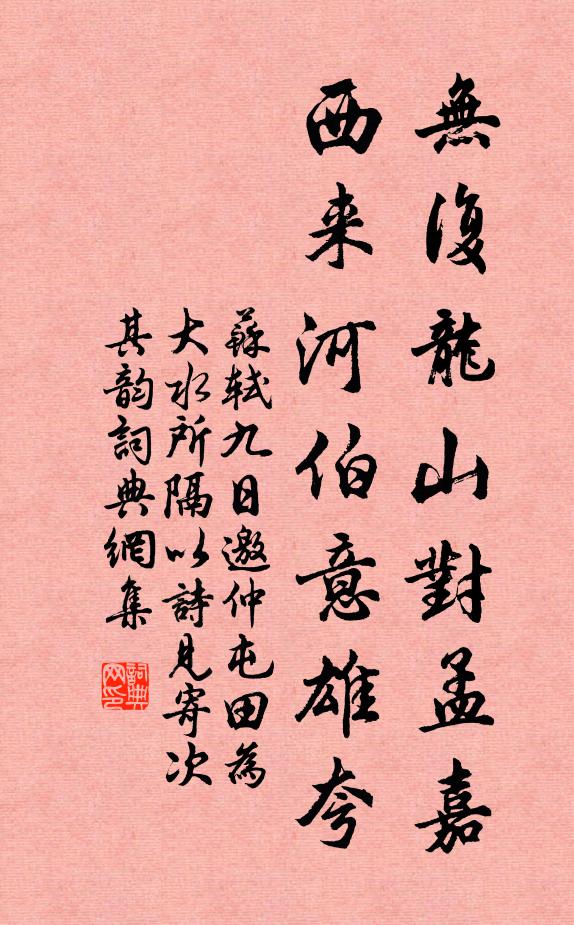 無復龍山對孟嘉
西来河伯意雄夸
蘇軾九日邀仲屯田為
大水所隔以詩見寄次
其韵詞典網集
詞典網印